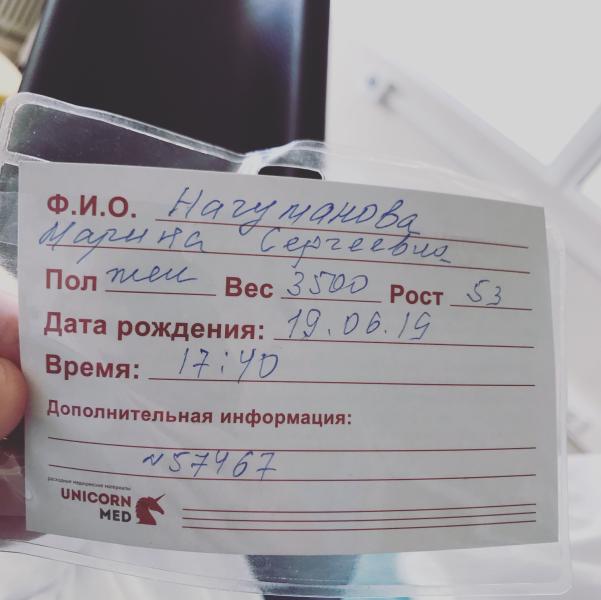 Ф.И.О. Нагуманова
Марина Сергеевна
Пол жен Вес 3500 Рост 53
Дата рождения: 19.06.19
Время: 17:40
Дополнительная информация:
№57467
расходные медицинские материалы
UNICORN
MED